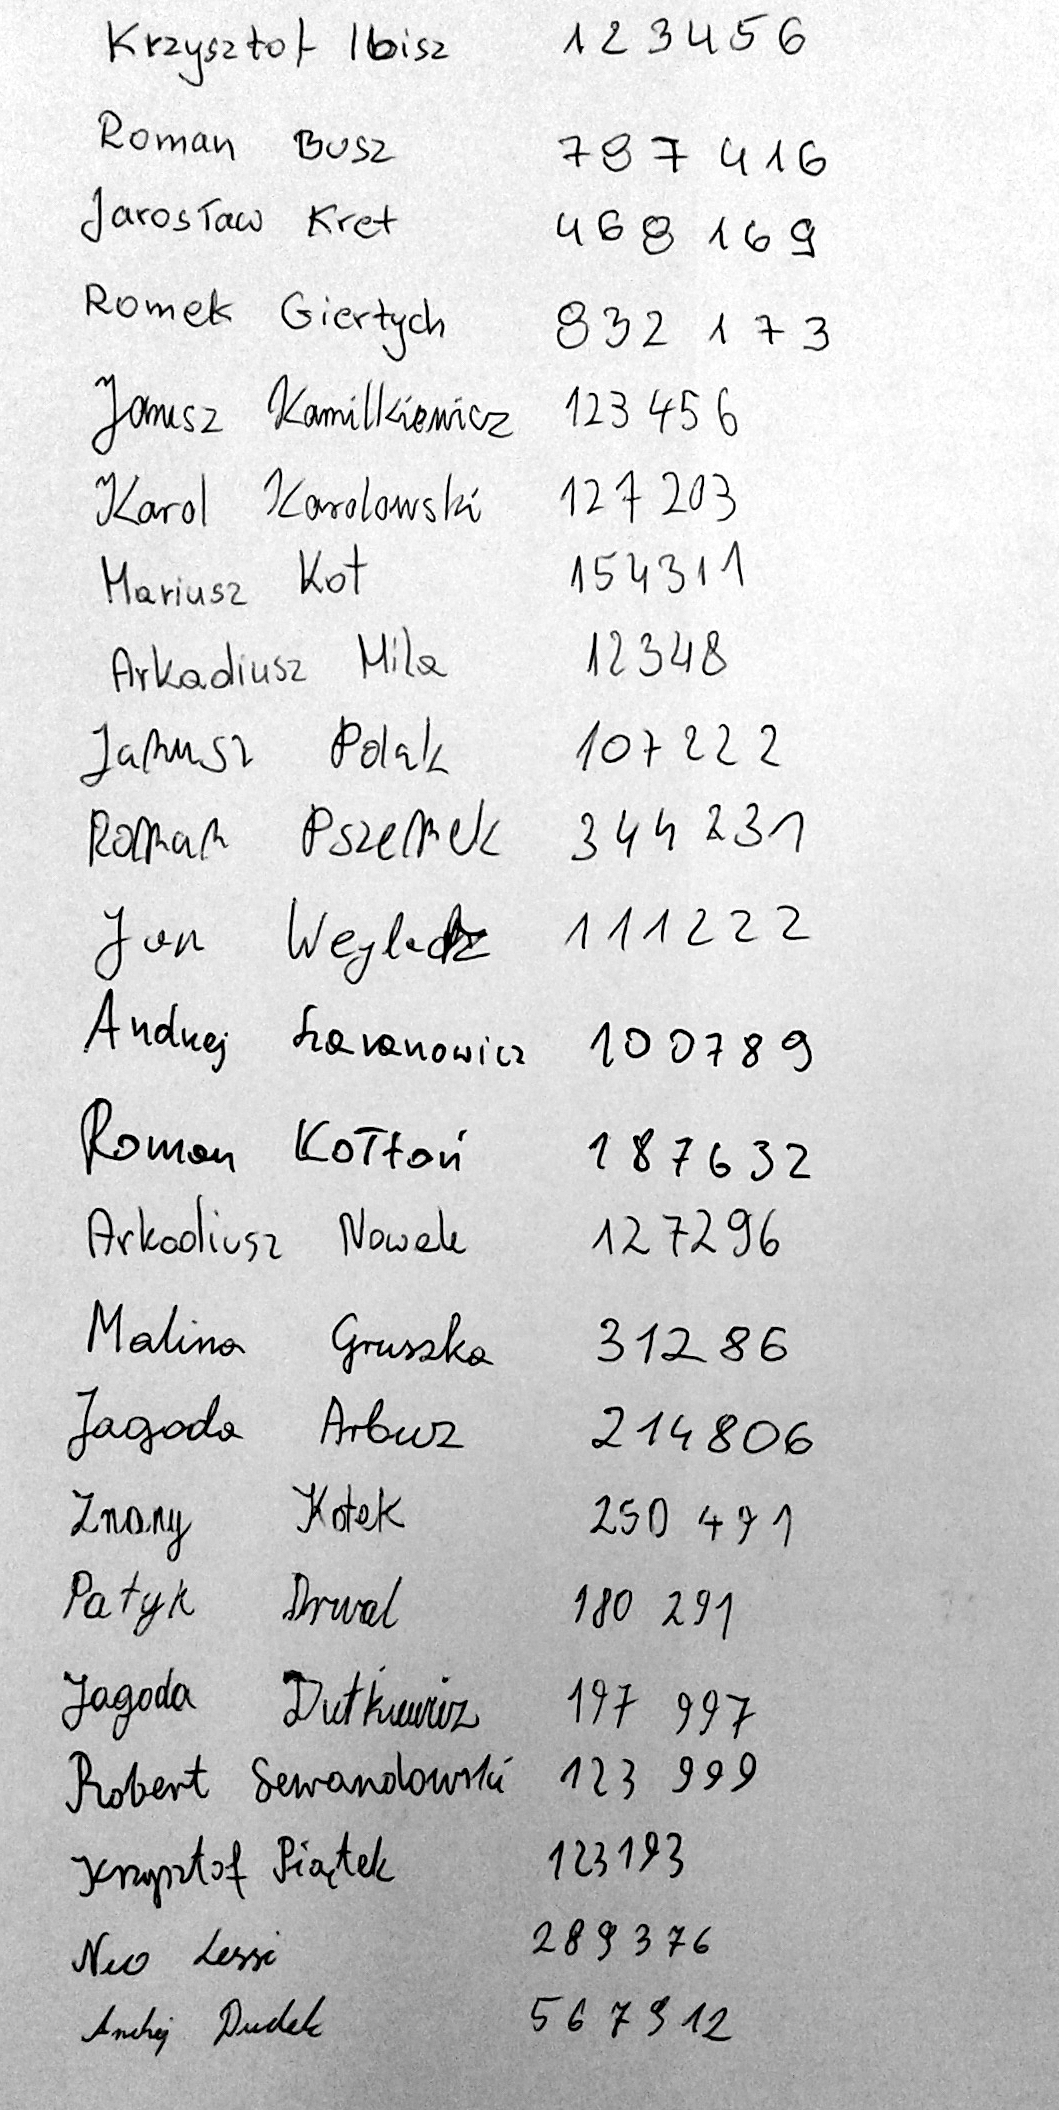 Krzysztof Ibisz 123456
Roman Busz 787 416
Jarosław Kret 468 169
Romek Giertych 832 173
Janusz Kamilkiewicz 123 456
Karol Karolowski 127 203
Mariusz Kot 154311
Arkadiusz Mila 12348
Janusz Polak 107 222
Roman Pszemek 344 231
Jan 111222
Andrzej 100789
Roman Kołtoń 187632
Arkadiusz Nowak 127296
Malina Gruszka 312 86
Jagoda Arbuz 214806
Znany Kotek 250 491
Patyk Drwal 180 291
Jagoda Dutkiewicz 197 997
Robert Lewandowski 123 999
Krzysztof Piątek 123193
Neo Lessi 289376
Andrzej Dudek 567912